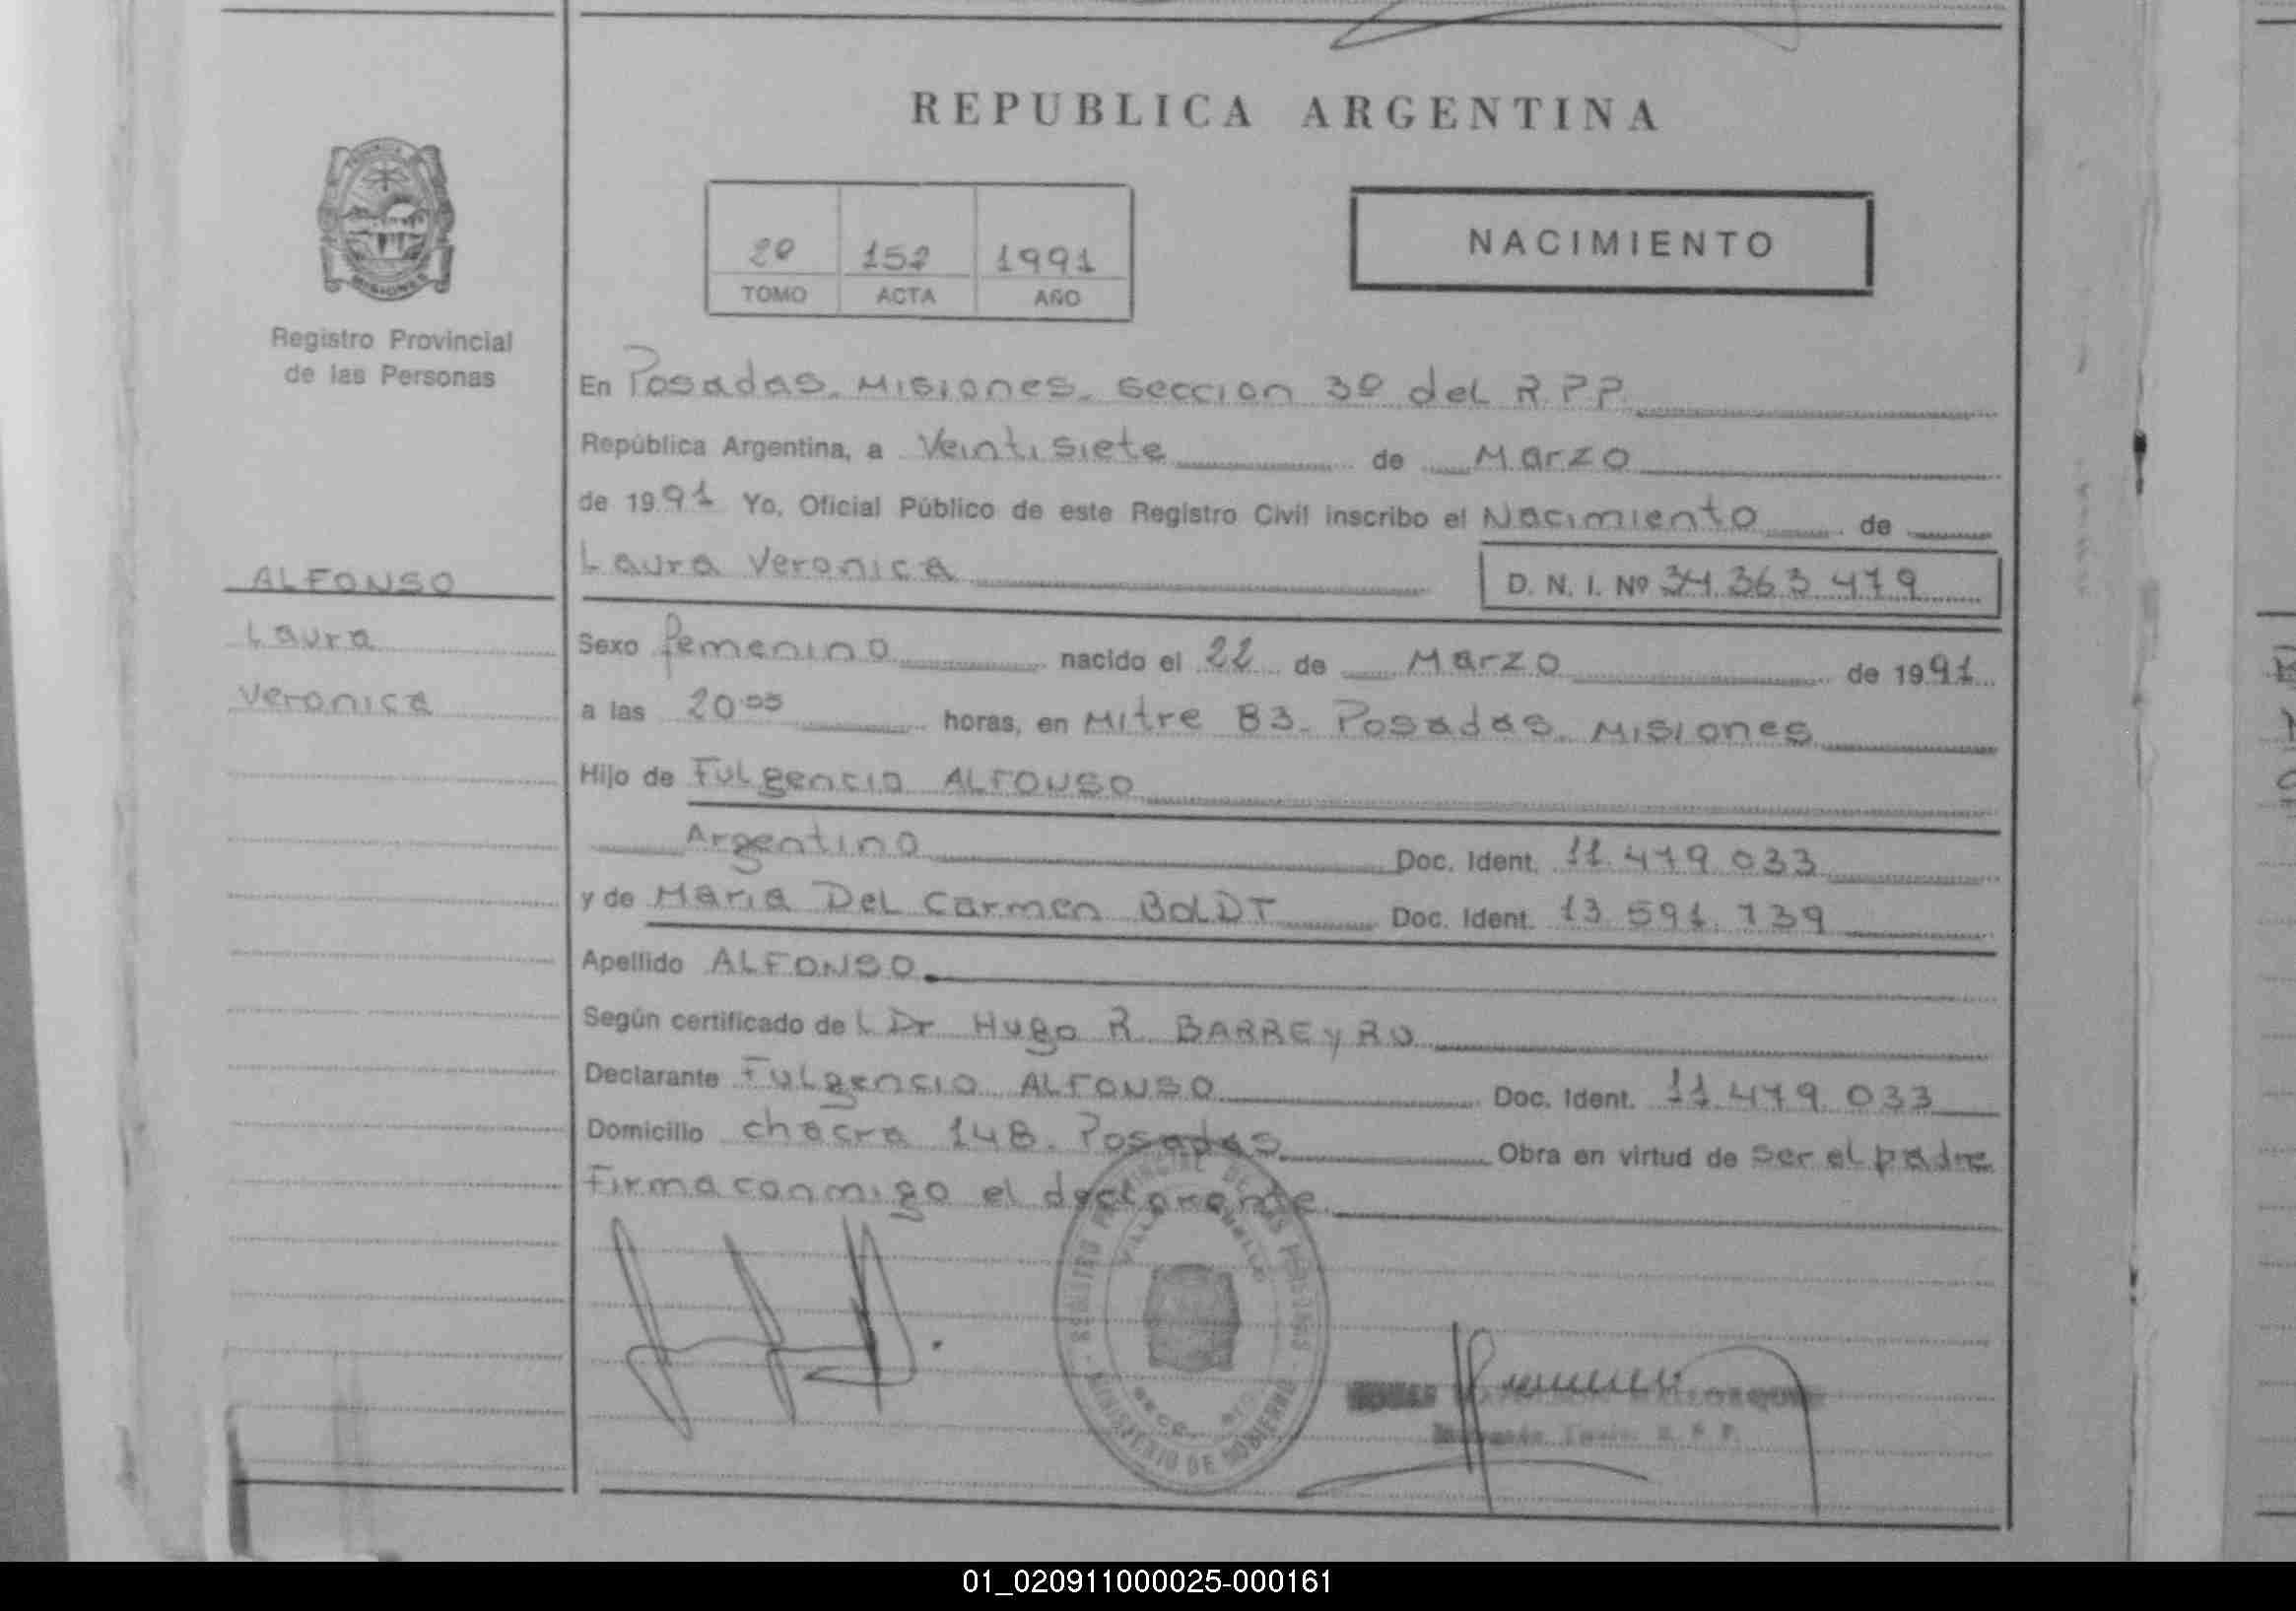 REPUBLICA ARGENTINA
NACIMIENTO
152 1991
TOMO ACTA AÑO
MISIONES
Registro Provincial
de las Personas
En Posadas. Misiones. Seccion 3º del R.P.P.
República Argentina, a Veintisiete de Marzo
de 1991 Yo, Oficial Público de este Registro Civil inscribo el Nacimiento de
Laura Veronica
D. N. I. Nº 34.363.479
ALFONSO
Laura
Veronica
Sexo femenino nacido el 22 de Marzo de 1991
a las 20.55 horas, en Mitre 83. Posadas. Misiones
Hijo de Fulgencio ALFONSO
Argentino Doc. Ident. 11.479.033
y de Maria Del Carmen BOLDT Doc. Ident. 13.591.739
Apellido ALFONSO
Según certificado del Dr Hugo R. BARREYRO
Declarante Fulgencio ALFONSO Doc. Ident. 11.479.033
Domicilio chacra 148. Posadas Obra en virtud de ser el padre
Firma conmigo el declarante.
REGISTRO PROVINCIAL DE LAS PERSONAS
MINISTERIO DE GOBIERNO
01_020911000025-000161